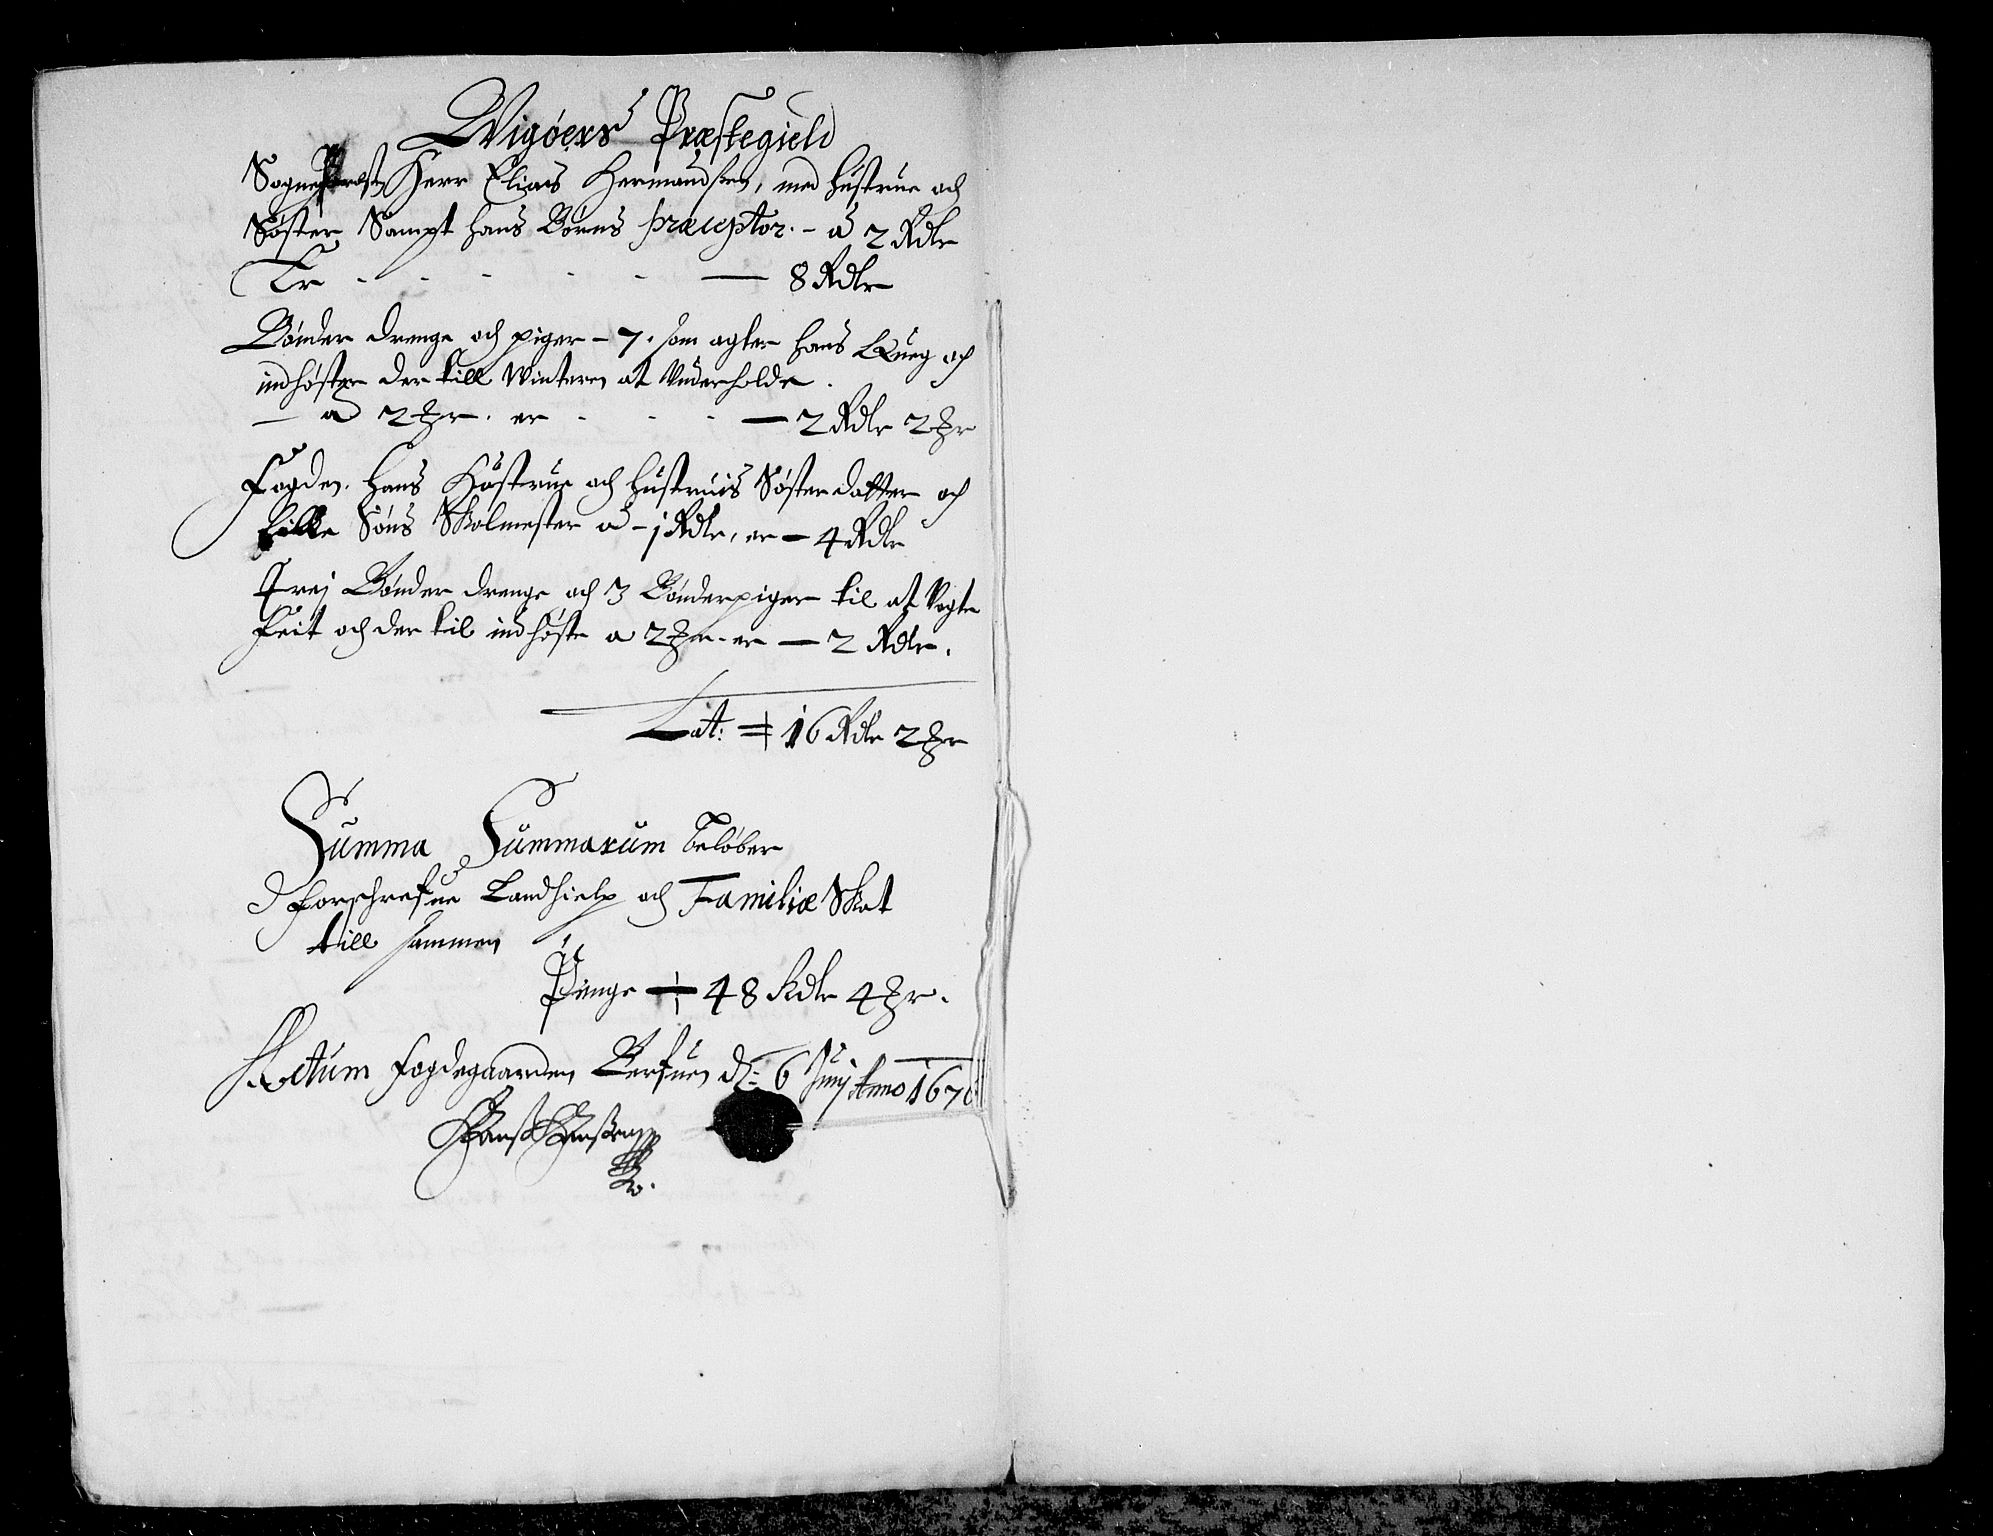 Wigøers Præstegield
Sognepræsten Herr Elias Hermandsen, med hustrue och
Søster Sampt hans Børns præceptor. - a 2 Rdlr
Er - - - - - — 8 Rdlr
Bønder drenge och piger - 7. som agter hans Queg och
indhøster der till Winteren at Underholde.
— a 2 ȝr. er - - - — 2 Rdlr 2 ȝr
Fogden. Hans Hustrue och hustruis Søster datter och
lille Søns Skolmester a - 1 Rdlr, er — 4 Rdlr
Trej Bønder drenge och 3 Bønderpiger til at Vogte
Feit och der til indhøste a 2 ȝr. er — 2 Rdlr.
Lat: = 16 Rdlr 2 ȝr
Summa Summarum beløber
forschrefne Landhielp och Familiæ Skat
till sammen
Penge — 48 Rdlr 4 ȝr.
Actum fogdegaarden d: 6 Junj Anno 1670